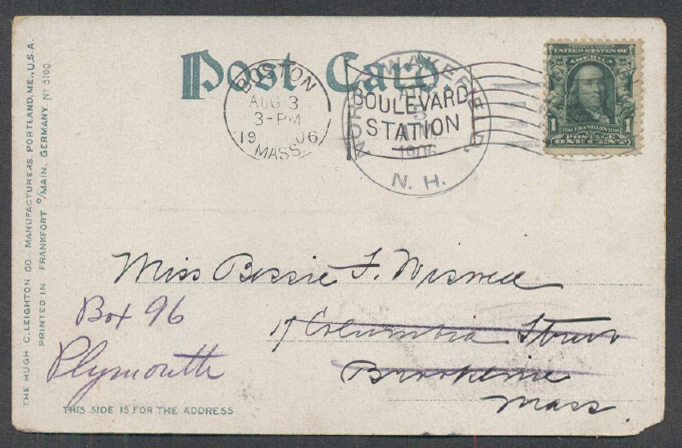 Post Card
BOSTON
AUG 3
3-PM
1906
MASS.
WAKEFIELD.
BOULEVARD
STATION
1906
N. H.
UNITED STATES OF
AMERICA
1 FRANKLIN 1
POSTAGE
ONE CENT
Miss Bessie F. Wiswell
Box 96
17 Columbia Street
Plymouth
Brookline
Mass.
THIS SIDE IS FOR THE ADDRESS
THE HUGH C. LEIGHTON CO., MANUFACTURERS, PORTLAND, ME., U.S.A.
PRINTED IN FRANKFORT o/MAIN, GERMANY. No 5100